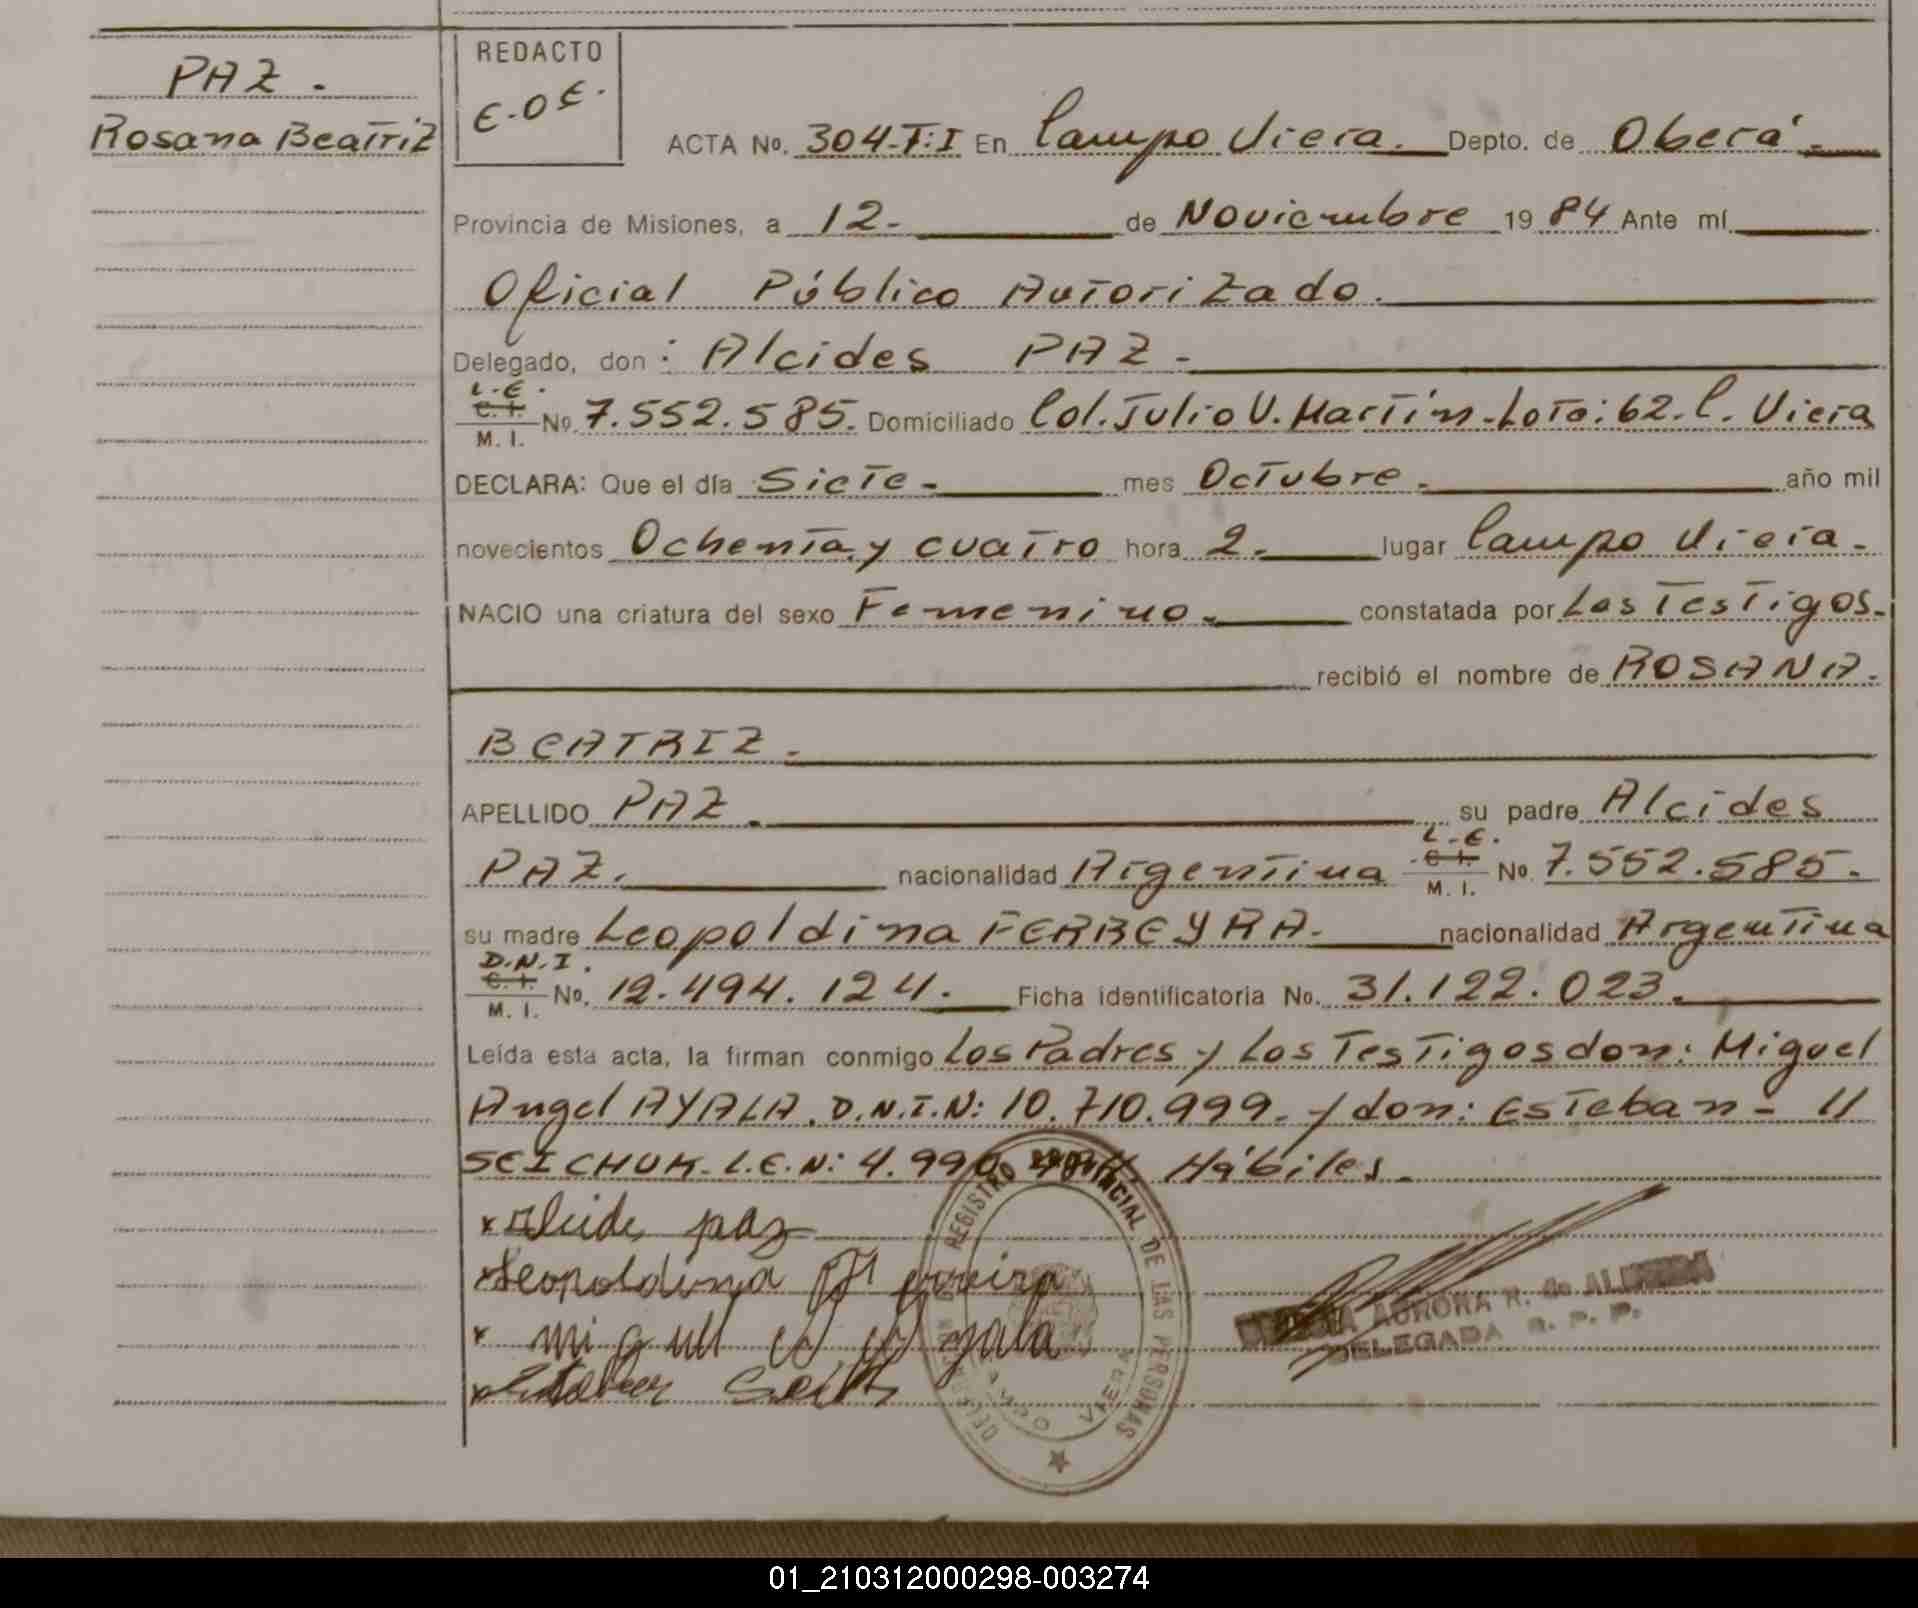 PAZ.
Rosana Beatriz
REDACTO
E.O.E.
ACTA No. 304-T:I En Campo Viera. Depto. de Oberá.
Provincia de Misiones, a 12.- de Noviembre 1984 Ante mí
Oficial Público Autorizado.
Delegado, don: Alcides PAZ.
L.E.
C. I.
M. I. No. 7.552.585. Domiciliado Col. Julio U. Martín-Loto: 62. C. Viera
DECLARA: Que el día Siete.- mes Octubre.- año mil
novecientos Ochenta y cuatro hora 2.- lugar Campo Viera.
NACIO una criatura del sexo Femenino.- constatada por Los Testigos.-
recibió el nombre de ROSANA.
BEATRIZ.-
APELLIDO PAZ.- su padre Alcides
L.E.
PAZ.- nacionalidad Argentina C. I. M. I. No. 7.552.585.
su madre Leopoldina FERREYRA.- nacionalidad Argentina
D.N.I.
C. I.
M. I. No. 12.494.124.- Ficha identificatoria No. 31.122.023.-
Leída esta acta, la firman conmigo Los Padres y Los Testigos don: Miguel
Angel AYALA. D.N.I.N: 10.710.999. y don: Esteban- //
SEICHUK-L.E.N: 4.990. Hábiles.-
x Alcide paz
x Leopoldina
x
x
REGISTRO PROVINCIAL DE LAS PERSONAS
CAMPO VIERA
AURORA R. de
DELEGADA R. P. P.
01_210312000298-003274